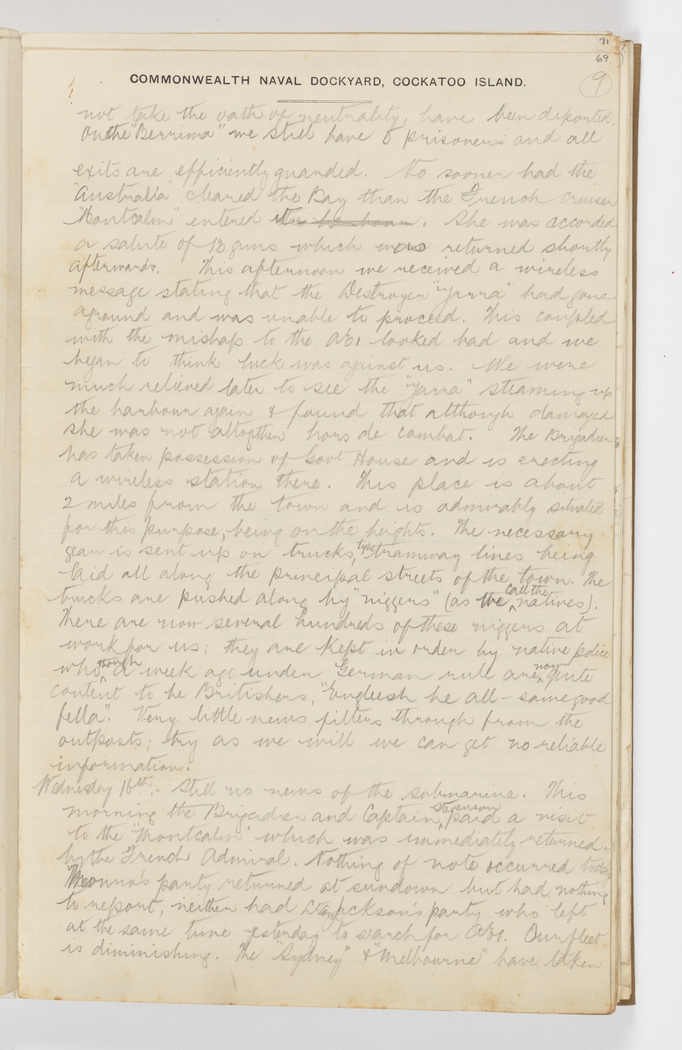 71
69.
9
COMMONWEALTH NAVAL DOCKYARD, COCKATOO ISLAND.
not take the oath of neutrality, have been deported.
On the "Berrima" we still have 8 prisoners and all
exits are efficiently guarded. No sooner had the
"Australia" cleared the Bay than the French cruiser
"Montcalm" entered. She was accorded
a salute of 13 guns which was returned shortly
afterwards. This afternoon we received a wireless
message stating that the Destroyer "Yarra" had gone
aground and was unable to proceed. This coupled
with the mishap to the AE1 looked bad and we
began to think luck was against us. We were
much relieved later to see the "Yarra" steaming up
the harbour again & found that although damaged
she was not altogther hors de combat. The Brigadier
has taken possession of Govt House and is erecting
a wireless station there. This place is about
2 miles from the town and is admirably situated
for this purpose, being on the heights. The necessary
gear is sent up on trucks, light tramway lines being
laid all along the principal streets of the town. The
trucks are pushed along by "niggers" (as we call the natives).
There are now several hundreds of these niggers at
work for us; they are kept in order by native police
who though a week ago under German rule are now quite
content to be Britishers, "Engleesh he all-same good
fella". Very little news filters through from the
outposts; try as we will we can get no reliable
information.
Wednesday 16th:- Still no news of the submarine. This
morning the Brigadier and Captain Stevenson paid a visit
to the "Montcalm" which was immediately returned
by the French Admiral. Nothing of note occurred today
party returned at sundown but had nothing
to report, neither had Jackson's party who left
at the same time yesterday to search for AE1. Our fleet
is diminishing. The "Sydney" & "Melbourne" have taken